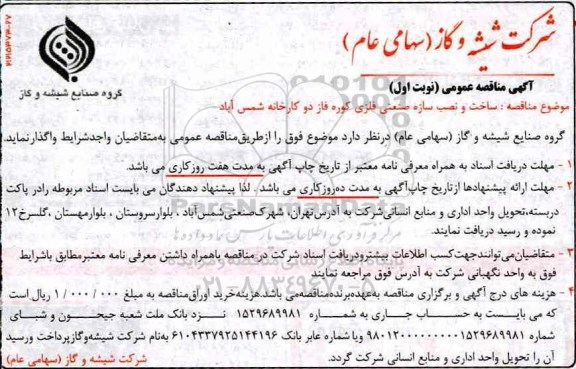 شرکت شیشه و گاز (سهامی عام)
گروه صنایع شیشه و گاز
آگهی مناقصه عمومی (نوبت اول)
موضوع مناقصه : ساخت و نصب سازه صنعتی فلزی کوره فاز دو کارخانه شمس آباد
گروه صنایع شیشه و گاز (سهامی عام) درنظر دارد موضوع فوق را ازطریق‌مناقصه عمومی به‌متقاضیان واجدشرایط واگذارنماید.
۱ - مهلت دریافت اسناد به همراه معرفی نامه معتبر از تاریخ چاپ آگهی به مدت هفت روزکاری می باشد.
۲ - مهلت ارائه پیشنهادها ازتاریخ چاپ‌آگهی به مدت ده‌روزکاری می باشد . لذا پیشنهاد دهندگان می بایست اسناد مربوطه رادر پاکت
دربسته،تحویل واحد اداری و منابع انسانی‌شرکت به آدرس‌تهران، شهرک‌صنعتی‌شمس‌آباد ، بلوارسروستان ، بلواربهستان ،گلسرخ۱۲
نموده و رسید دریافت نمایند.
۳ - متقاضیان‌می‌توانندجهت‌کسب اطلاعات بیشترودریافت اسناد شرکت در مناقصه باهمراه داشتن معرفی نامه معتبرمطابق باشرایط
فوق به واحد نگهبانی شرکت به آدرس فوق مراجعه نمایند
۴ - هزینه های درج آگهی و برگزاری مناقصه به‌عهده‌برنده‌مناقصه‌می باشد.هزینه‌خرید اوراق‌مناقصه به مبلغ ۱/۰۰۰/۰۰۰ ریال است
که می بایست به حساب جاری به شماره ۱۵۲۹۶۸۹۹۸۱ نزد بانک ملت شعبه جیحون و شبای
شماره ۹۸۰۱۲۰۰۰۰۰۰۰۰۰۱۵۲۹۶۸۹۹۸۱ ویا شماره عابر بانک ۶۱۰۴۳۳۷۹۲۵۱۴۴۱۹۶ به‌نام شرکت شیشه‌وگازپرداخت ورسید
آن را تحویل واحد اداری و منابع انسانی شرکت گردد.
شرکت شیشه و گاز (سهامی عام)
ParsNamadData
۰۲۱-۸۸۳۴۹۶۷۰-۵